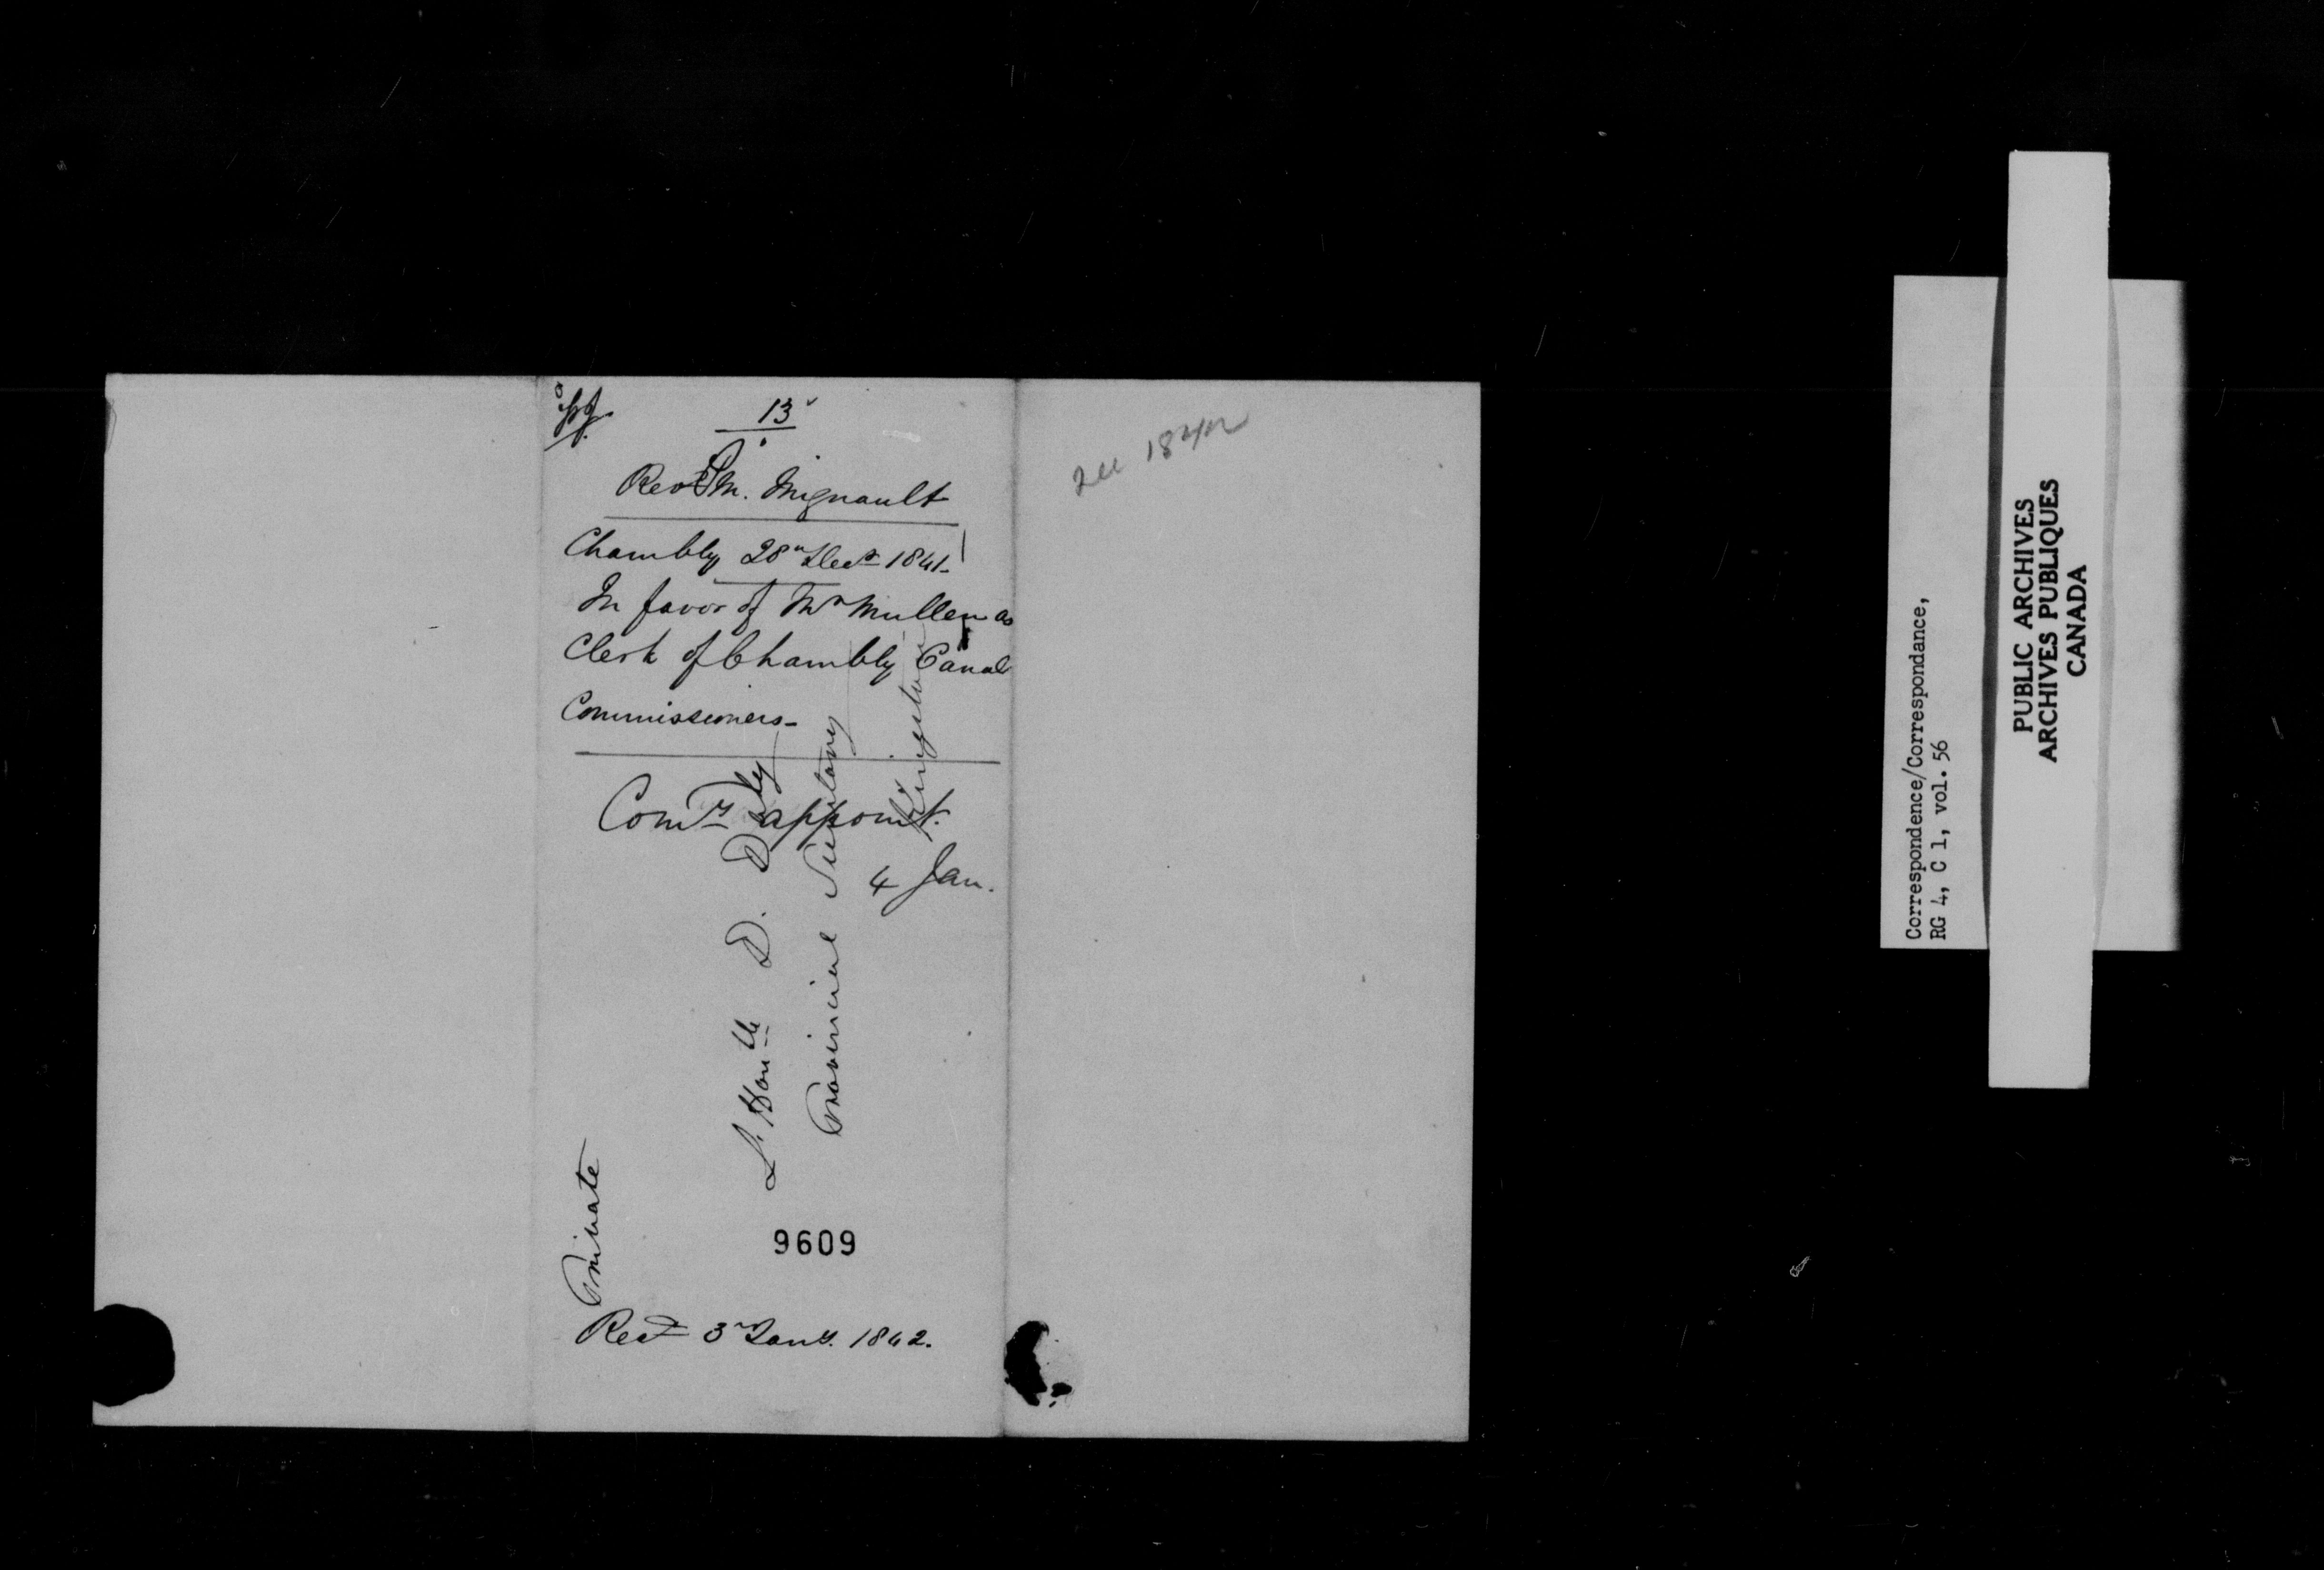 13
Revd P. M. Mignault
Chambly 28th Decr 1841.
In favor of Mr Mullen as
Clerk of Chambly Canal
Commissioners-
Comrs appoint.
4 Jan.
L. Honble D. Daly
Provincial Secretary
Kingston
Private
9609
Recd 3rd Jany. 1842.
1842
Correspondence/Correspondance,
RG 4, C 1, vol. 56
PUBLIC ARCHIVES
ARCHIVES PUBLIQUES
CANADA